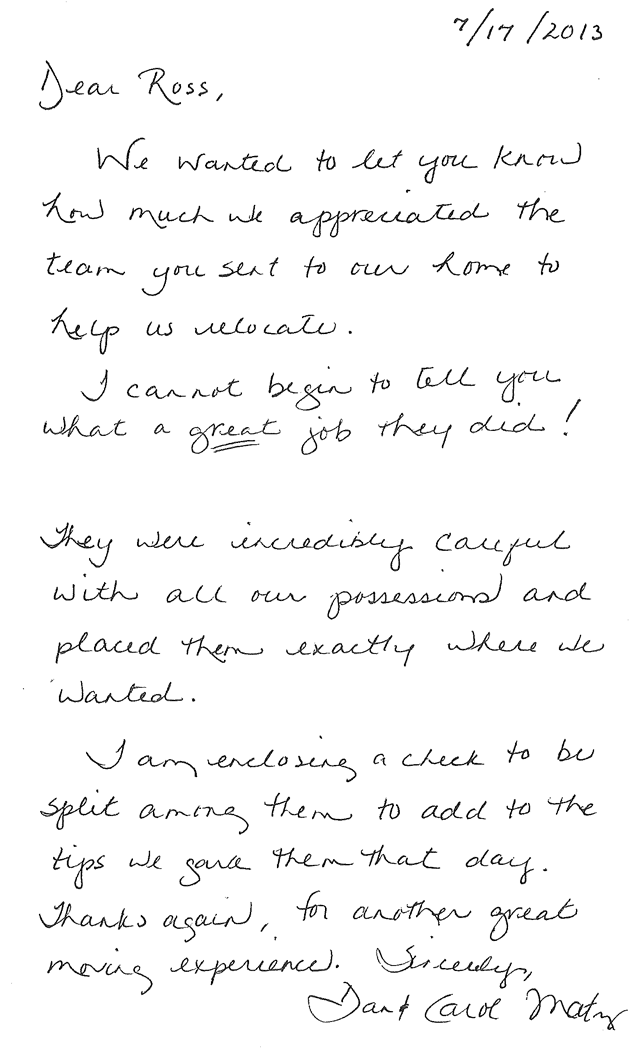 7/17/2013
Dear Ross,
We wanted to let you know
how much we appreciated the
team you sent to our home to
help us relocate.
I cannot begin to tell you
what a great job they did!
They were incredibly careful
with all our possessions and
placed them exactly where we
wanted.
I am enclosing a check to be
split among them to add to the
tips we gave them that day.
Thanks again, for another great
moving experience. Sincerely,
Dan & Carol